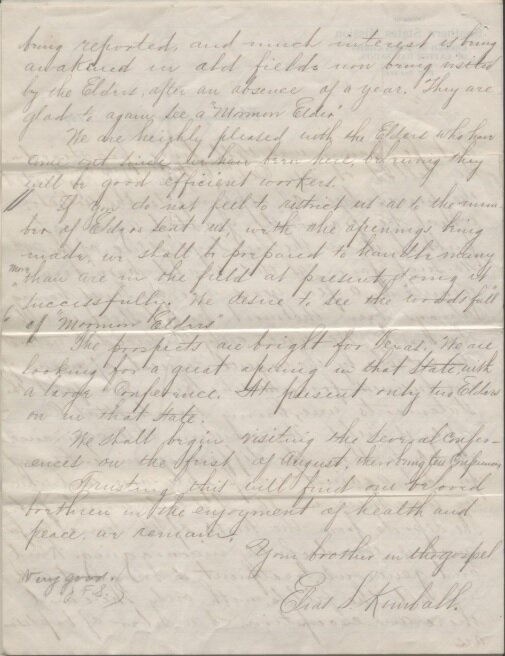 being reported, and much interest is being
awakened in old fields now being visited
by the Elders, after an absence of a year. They are
glad to again see a "Mormon Elder"
We are heighly pleased with the Elders who have
come out since we have been here, believing they
will be good efficient workers.
If you do not feel to restrict us as to the num-
ber of Elders sent us, with the openings being
made, we shall be prepared to handle many
more
than are in the field at present, doing it
successfully. We desire to see the woods "full
of "Mormon Elders"
The prospects are bright for Texas. We are
looking for a great opening in that State, with
a large Conference. At present only two Elders
are in that State.
We shall begin visiting the several Confer-
ences on the first of August, there being ten Conferences
Trusting this will find our beloved
brethren in the enjoyment of health and
peace, we remain,
Your brother in the gospel
Elias S. Kimball.
Very good.
J. F. S.